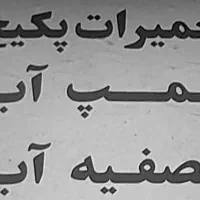 عمیرات پکیج
مپ آب
صفیه آب